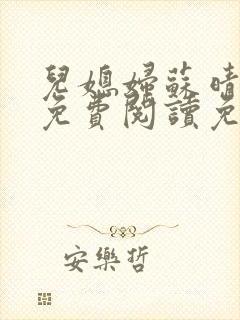 兒媳婦蘇晴
免費閱讀免
安樂哲